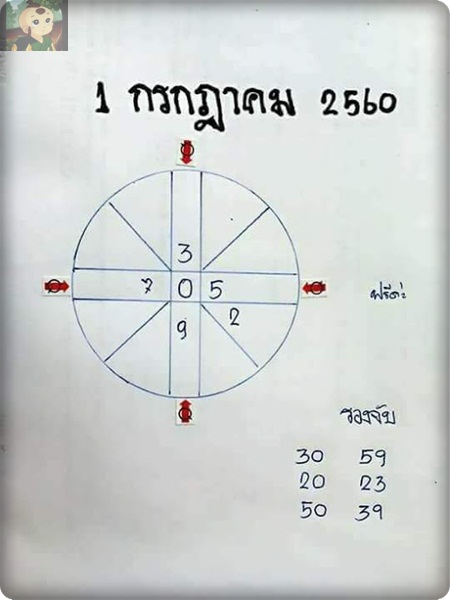 1 กรกฎาคม 2560
3
7 0 5
9 2
ฟรีค่ะ
รองจับ
30 59
20 23
50 39